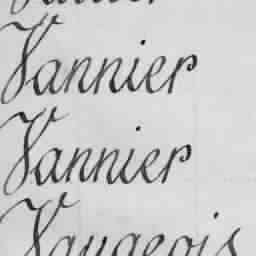 Vannier
Vannier
Vaugeois